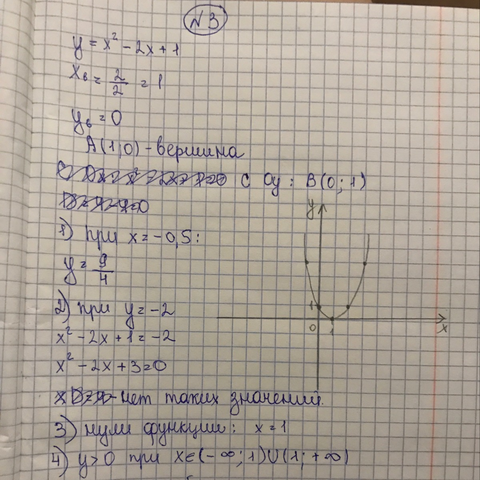 №3
y = x² - 2x + 1
xв = 2/2 = 1
yв = 0
A(1;0) - вершина
с Oy: B(0;1)
1) при x = -0,5:
y = 9/4
2) при y = -2
x² - 2x + 1 = -2
x² - 2x + 3 = 0
нет таких значений.
3) нули функции: x = 1
4) y > 0 при x∈(-∞;1)∪(1;+∞)
y
1
0
1
x